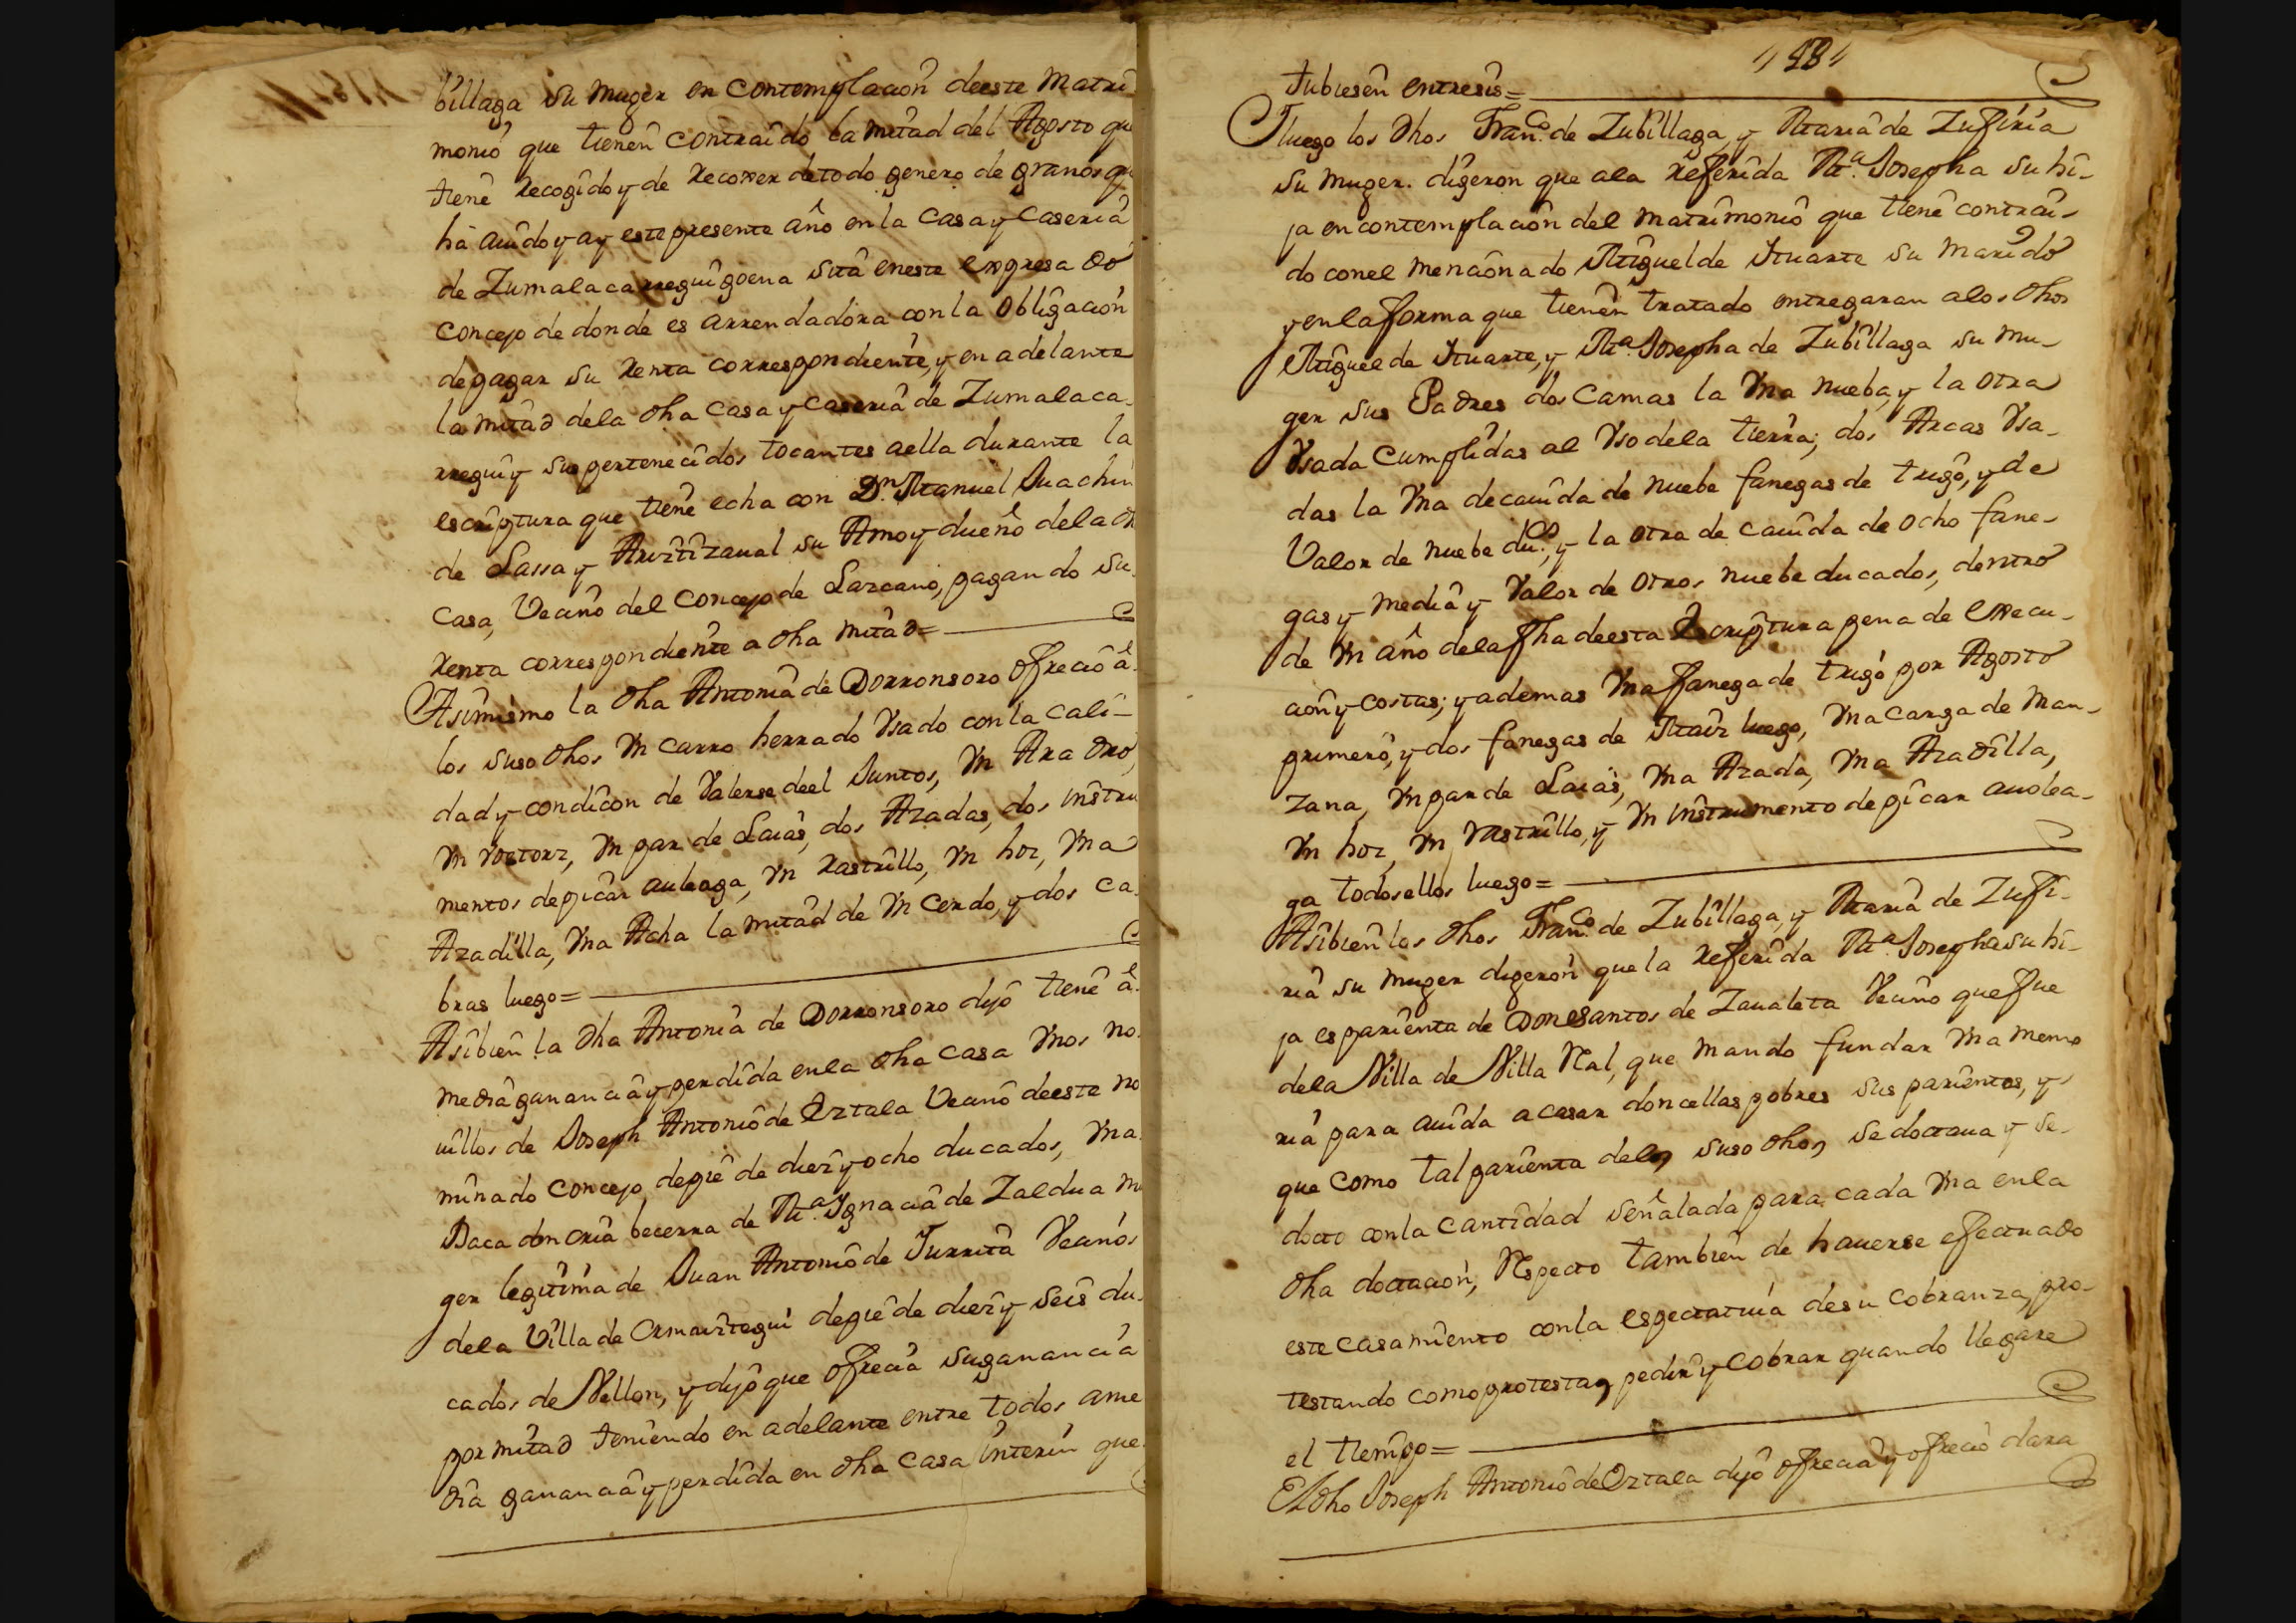 billaga su muger en contemplacion deeste Matri
monio que tienen contraido la mitad del Agosto que
tiene recogido y de recoxer de todo genero de granos que
ha auido y ay este presente año en la casa y caseria
de Zumalacarreguigoena sita eneste expresado
concejo de donde es arrendadora con la obligacion
de pagar su renta correspondiente, y en adelante
la mitad dela dha casa y caseria de Zumalaca-
rregui y sus pertenecidos tocantes aella durante la
escriptura que tiene echa con Dn. Manuel Juachin
de Lassa y Arizti zaual su Amo y dueño dela dha
casa, Vecino del concejo de Lazcano, pagando su
renta correspondiente a dha mitad=
Asimismo la dha Antonia de Dorronsoro ofrecio â
los suso dhos Vn carro herrado Vsado con la cali-
dad y condicon de Valerse deel Juntos, Vn Aradro,
Vn Vostorz, Vn par de Laias, dos Azadas, dos instru
mentos de picar auleaga, Vn rastrillo, Vn hoz, Vna
Azadilla, Vna Acha la mitad de Vn Cerdo, y dos ca-
bras luego=
Asibien la dha Antonia de Dorronsoro dijo tiene â
media ganancia y perdida enla dha casa Vnos no-
uillos de Joseph Antonio de Oztala Vecino deeste no
minado concejo depie de diez y ocho ducados, Vna
Baca con cria becerra de Ma. Ygnacia de Zaldua mu
ger legitima de Juan Antonio de Yurrita Vecinos
dela Villa de Ormaiztegui depie de diez y seis du-
cados de Vellon, y dijo que ofrecia su ganancia
por mitad teniendo en adelante entre todos ame
dia ganancia y perdida en dha casa interin que
"43"
tubiesen entresis=
Yluego los dhos Franco. de Zubillaga, y Maria de Zufiria
su muger. digeron que ala referida Ma. Josepha su hi-
ja en contemplacion del matrimonio que tiene contrai-
do conel mencionado Miguel de Ytuarte su marido
y enla forma que tienen tratado entregaran alos dhos
Miguel de Ytuarte, y Ma. Josepha de Zubillaga su mu-
ger sus Padres dos Camas la Vna nueba, y la otra
Vsada cumplidas al Vso dela tierra; dos Arcas Vsa-
das la Vna de cauida de nuebe fanegas de trigo, y de
Valor de nuebe dus., y la otra de cauida de ocho fane-
gas y media y Valor de otros nuebe ducados, dentro
de Vn año dela fha deesta Escriptura pena de execu-
cion y costas; y ademas Vna fanega de trigo por Agosto
primero, y dos fanegas de Maiz luego, Vna carga de Man-
zana, Vn par de Laias, Vna Azada, Vna Azadilla,
Vn hoz, Vn rastrillo, y Vn instrumento de picar auolea-
ga todos ellos luego=
Asibien los dhos Franco. de Zubillaga, y Maria de Zufi-
ria su muger digeron que la referida Ma. Josepha su hi-
ja es parienta de Don Santos de Zaualeta Vecino que fue
dela Villa de Villa Real, que mando fundar Vna memo
ria para auida a casar doncellas pobres sus parientas, y
que como tal parienta delos suso dhos se doctaua y se
docto con la cantidad señalada para cada Vna enla
dha doctacion, Respecto tambien de hauerse efectuado
este casamiento con la espectatiua desu cobranza, pro-
testando como protestan pedir y cobrar quando llegare
el tiempo=
El dho Joseph Antonio de Oztala dijo ofrecia y ofrecio dara